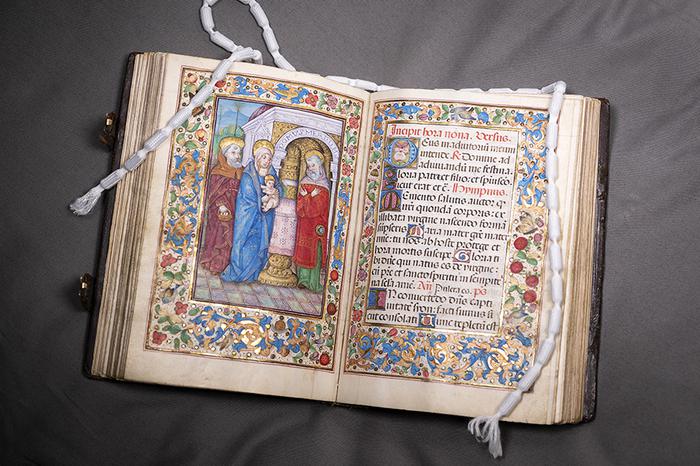 DOMVS ME
Incipit hora nona. Versus.
Deus in adiutoriū meum
intende & Domine ad
adiuuandum me festina
Gloria patri et filio: et spūi scō
Sicut erat et c̄. Hympnus.
Memento salutis auctor qd̄
nr̄i quondam corporis: ex
illibata virgine nascendo formā
sumpseris Maria mater gr̄e mater
mīe: tu nos ab hoste protege et
hora mortis suscipe. Gloria
tibi dn̄e qui natus es de virgine:
cum pr̄e et sancto spiritu in sempiter
na secula amē. An̄ Pulcra es. ps
In conuertēdo Dn̄s capti
uitatē syon: facti sumus si
cut consolati Tunc repletū est